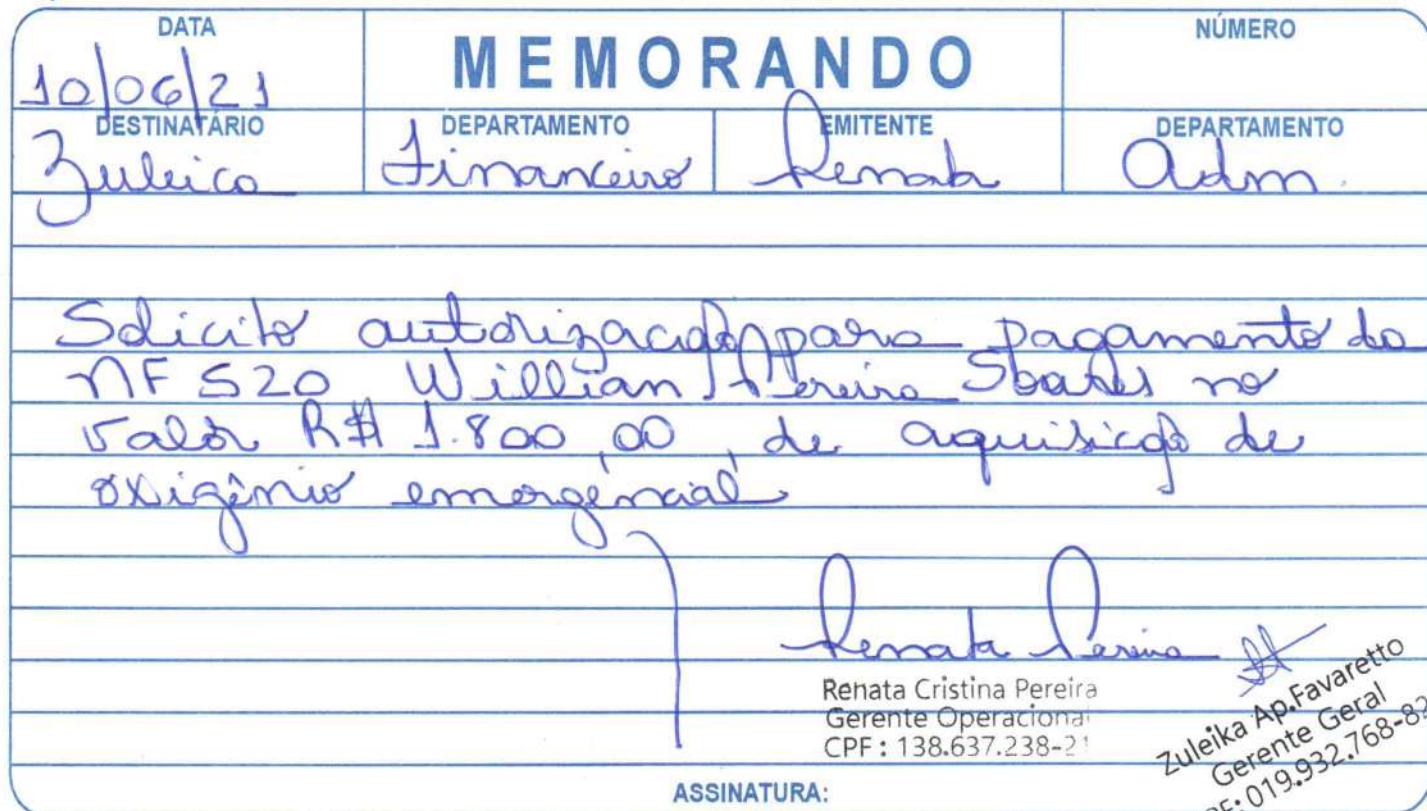 DATA
MEMORANDO
NÚMERO
10/06/21
DESTINATÁRIO
DEPARTAMENTO
EMITENTE
DEPARTAMENTO
Zuleica
Financeiro
Renata
Adm.
Solicito autorização para pagamento da
NF 520 Willian Pereira Soares no
valor R$ 1.800,00, de aquisição de
oxigênio emergêncial
Renata Pereira
Renata Cristina Pereira
Gerente Operacional
CPF: 138.637.238-21
Zuleika Ap.Favaretto
Gerente Geral
PF: 019.932.768-82
ASSINATURA: